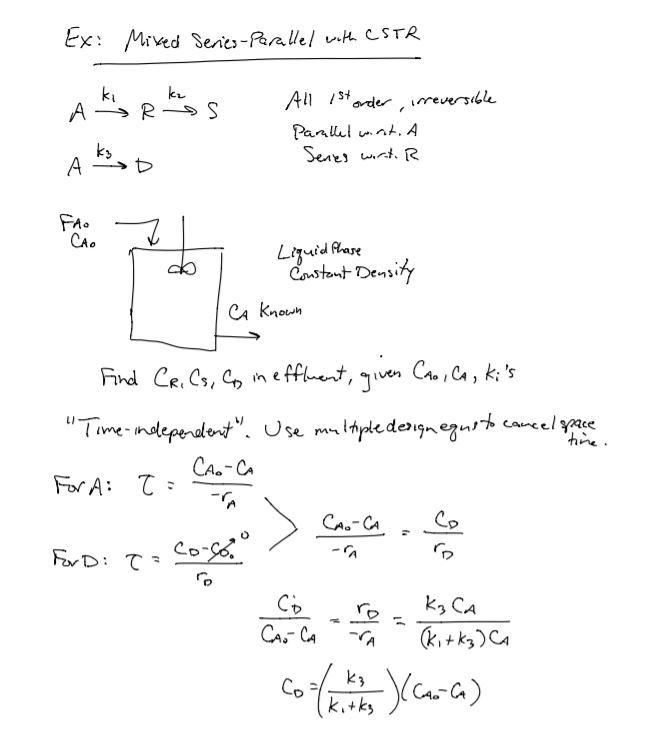 Ex: Mixed Series-Parallel with CSTR
A —k₁→ R —k₂→ S
All 1st order, irreversible
Parallel w.r.t. A
Series w.r.t. R
A —k₃→ D
FAo
CAo
Liquid Phase
Constant Density
CA Known
Find CR, CS, CD in effluent, given CAo, CA, ki's
"Time-independent". Use multiple design eqns to cancel space time.
For A: τ = (CAo-CA)/(-rA)
For D: τ = (CD-CDo→0)/rD
(CAo-CA)/(-rA) = CD/rD
CD/(CAo-CA) = rD/(-rA) = k3CA/((k1+k3)CA)
CD = (k3/(k1+k3))(CAo-CA)